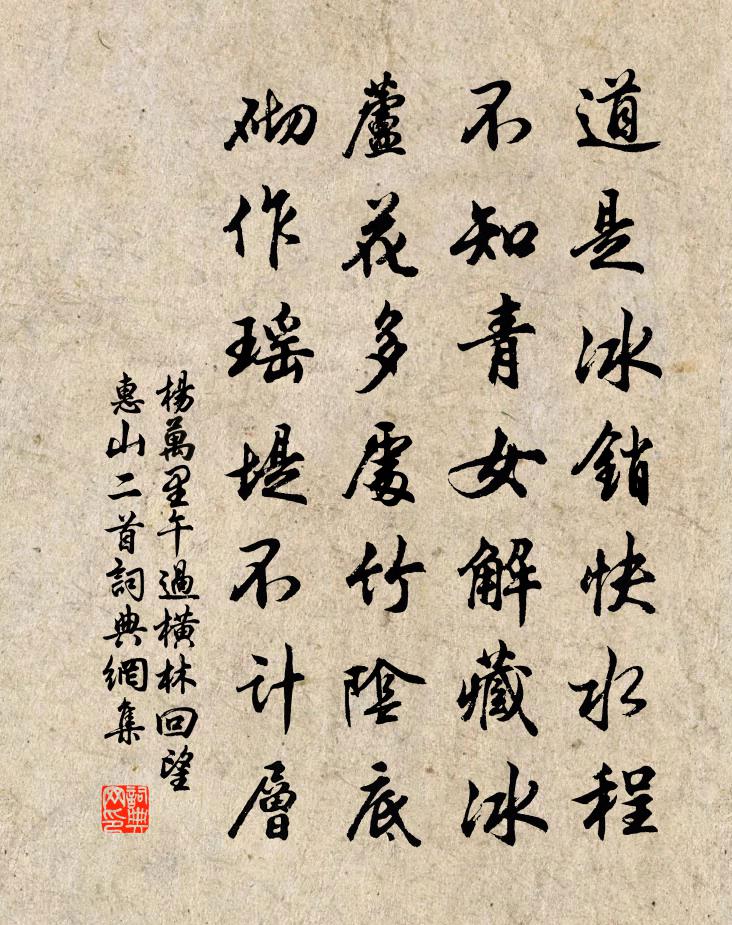 道是冰銷快水程
不知青女解藏冰
蘆花多處竹陰底
砌作瑶堤不计層
楊萬里午過橫林回望
惠山二首詞典網集
詞典网印